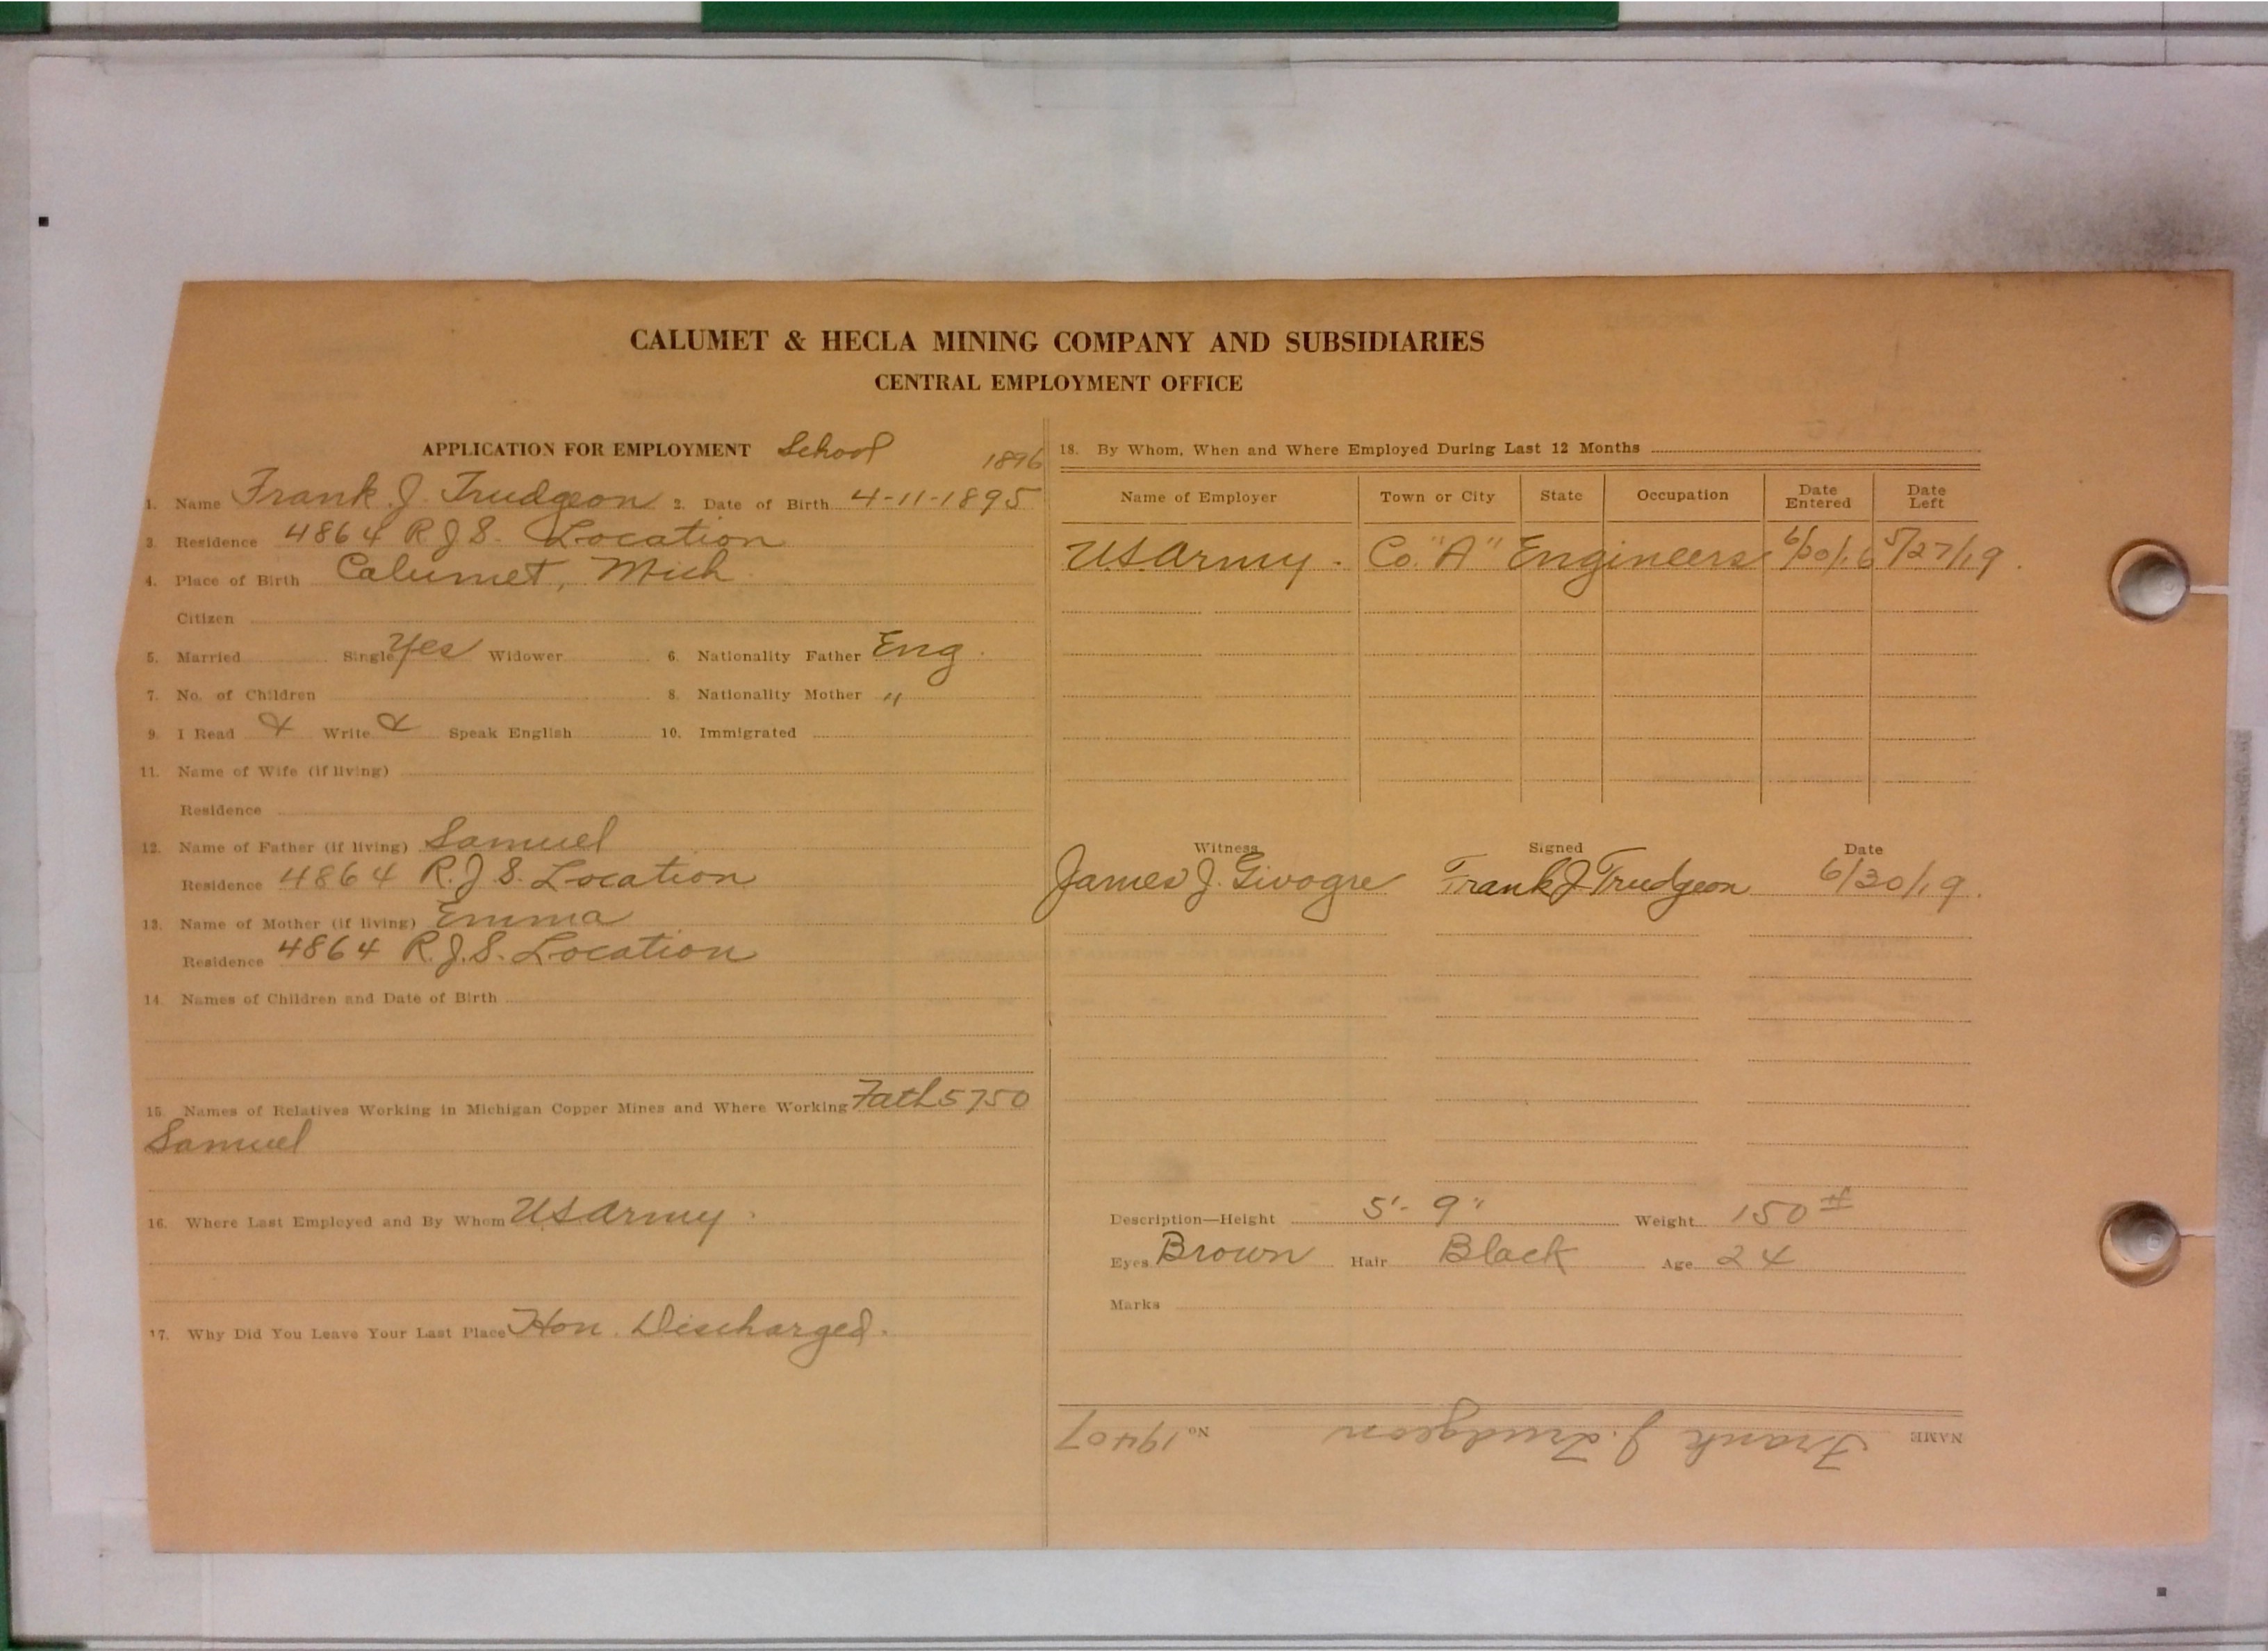 CALUMET & HECLA MINING COMPANY AND SUBSIDIARIES
CENTRAL EMPLOYMENT OFFICE
APPLICATION FOR EMPLOYMENT School
1896
1. Name Frank J. Trudgeon 2. Date of Birth 4-11-1895
3. Residence 4864 R.J.S. Location
4. Place of Birth Calumet, Mich
Citizen
5. Married Single Yes Widower 6. Nationality Father Eng.
7. No. of Children 8. Nationality Mother "
9. I Read & Write & Speak English 10. Immigrated
11. Name of Wife (if living)
Residence
12. Name of Father (if living) Samuel
Residence 4864 R.J.S. Location
13. Name of Mother (if living) Emma
Residence 4864 R.J.S. Location
14. Names of Children and Date of Birth
15. Names of Relatives Working in Michigan Copper Mines and Where Working Fath 5750
Samuel
16. Where Last Employed and By Whom US Army.
17. Why Did You Leave Your Last Place Hon. Discharged.
18. By Whom, When and Where Employed During Last 12 Months
Name of Employer Town or City State Occupation Date Entered Date Left
US Army. Co. "A" Engineers 6/20/16 5/27/19.
Witness Signed Date
James J. Givogre Frank J Trudgeon 6/30/19.
Description—Height 5'-9" Weight 150 #
Eyes Brown Hair Black Age 24
Marks
NAME Frank J. Trudgeon No. 19407